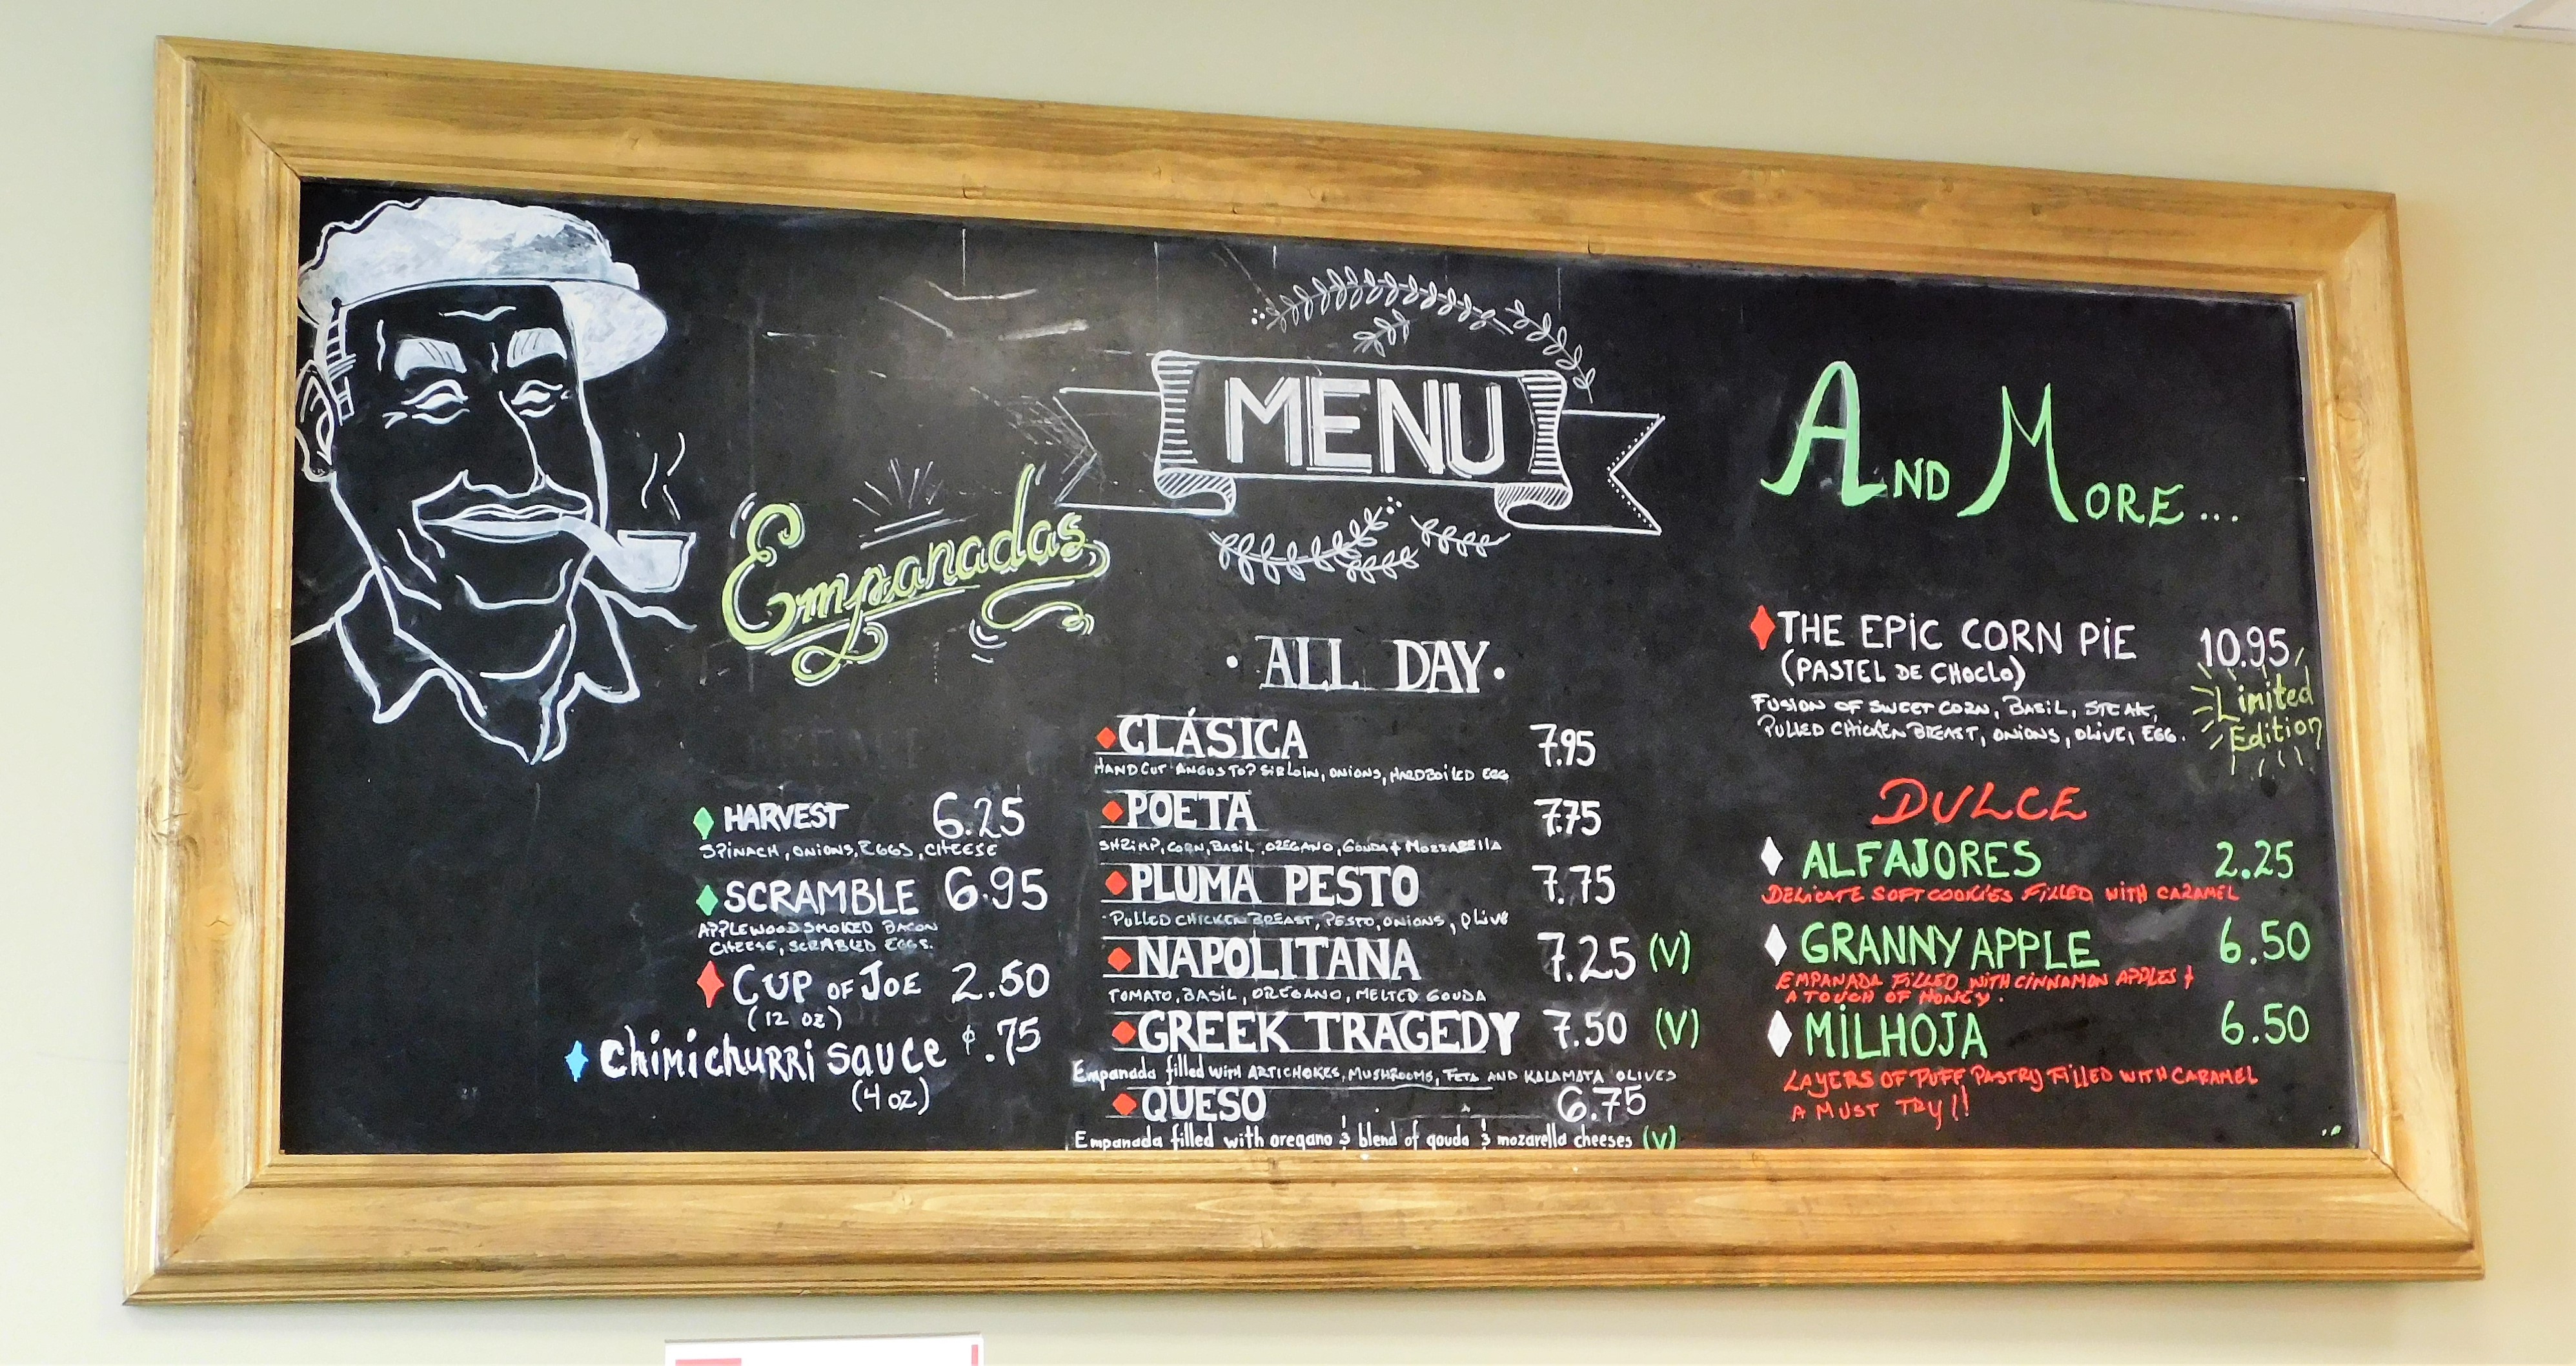 MENU
Empanadas
HARVEST 6.25
SPINACH, ONIONS, EGGS, CHEESE
SCRAMBLE 6.95
APPLEWOOD SMOKED BACON
CHEESE, SCRAMBLED EGGS.
CUP OF JOE 2.50
(12 OZ)
chimichurri sauce ¢.75
(4 oz)
• ALL DAY •
CLÁSICA 7.95
HANDCUT ANGUS TOP SIRLOIN, ONIONS, HARDBOILED EGG
POETA 7.75
SHRIMP, CORN, BASIL, OREGANO, GOUDA & MOZZARELLA
PLUMA PESTO 7.75
PULLED CHICKEN BREAST, PESTO, ONIONS, OLIVE
NAPOLITANA 7.25 (V)
TOMATO, BASIL, OREGANO, MELTED GOUDA
GREEK TRAGEDY 7.50 (V)
Empanada filled with ARTICHOKES, MUSHROOMS, FETA AND KALAMATA OLIVES
QUESO 6.75
Empanada filled with oregano & blend of gouda & mozarella cheeses (V)
AND MORE...
THE EPIC CORN PIE 10.95
(PASTEL DE CHOCLO)
Limited
Edition
FUSION OF SWEET CORN, BASIL, STEAK,
PULLED CHICKEN BREAST, ONIONS, OLIVE, EGG.
DULCE
ALFAJORES 2.25
DELICATE SOFT COOKIES FILLED WITH CARAMEL
GRANNY APPLE 6.50
EMPANADA FILLED WITH CINNAMON APPLES &
A TOUCH OF HONEY.
MILHOJA 6.50
LAYERS OF PUFF PASTRY FILLED WITH CARAMEL
A MUST TRY!!